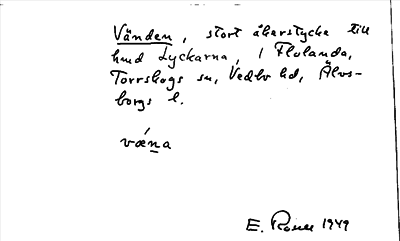 Vänden, stort åkerstycke till
hmd Lyckarna, i Flolanda,
Torrskogs sn, Vedbo hd, Älvs-
borgs l.
vǽna
E. Rosell 1949